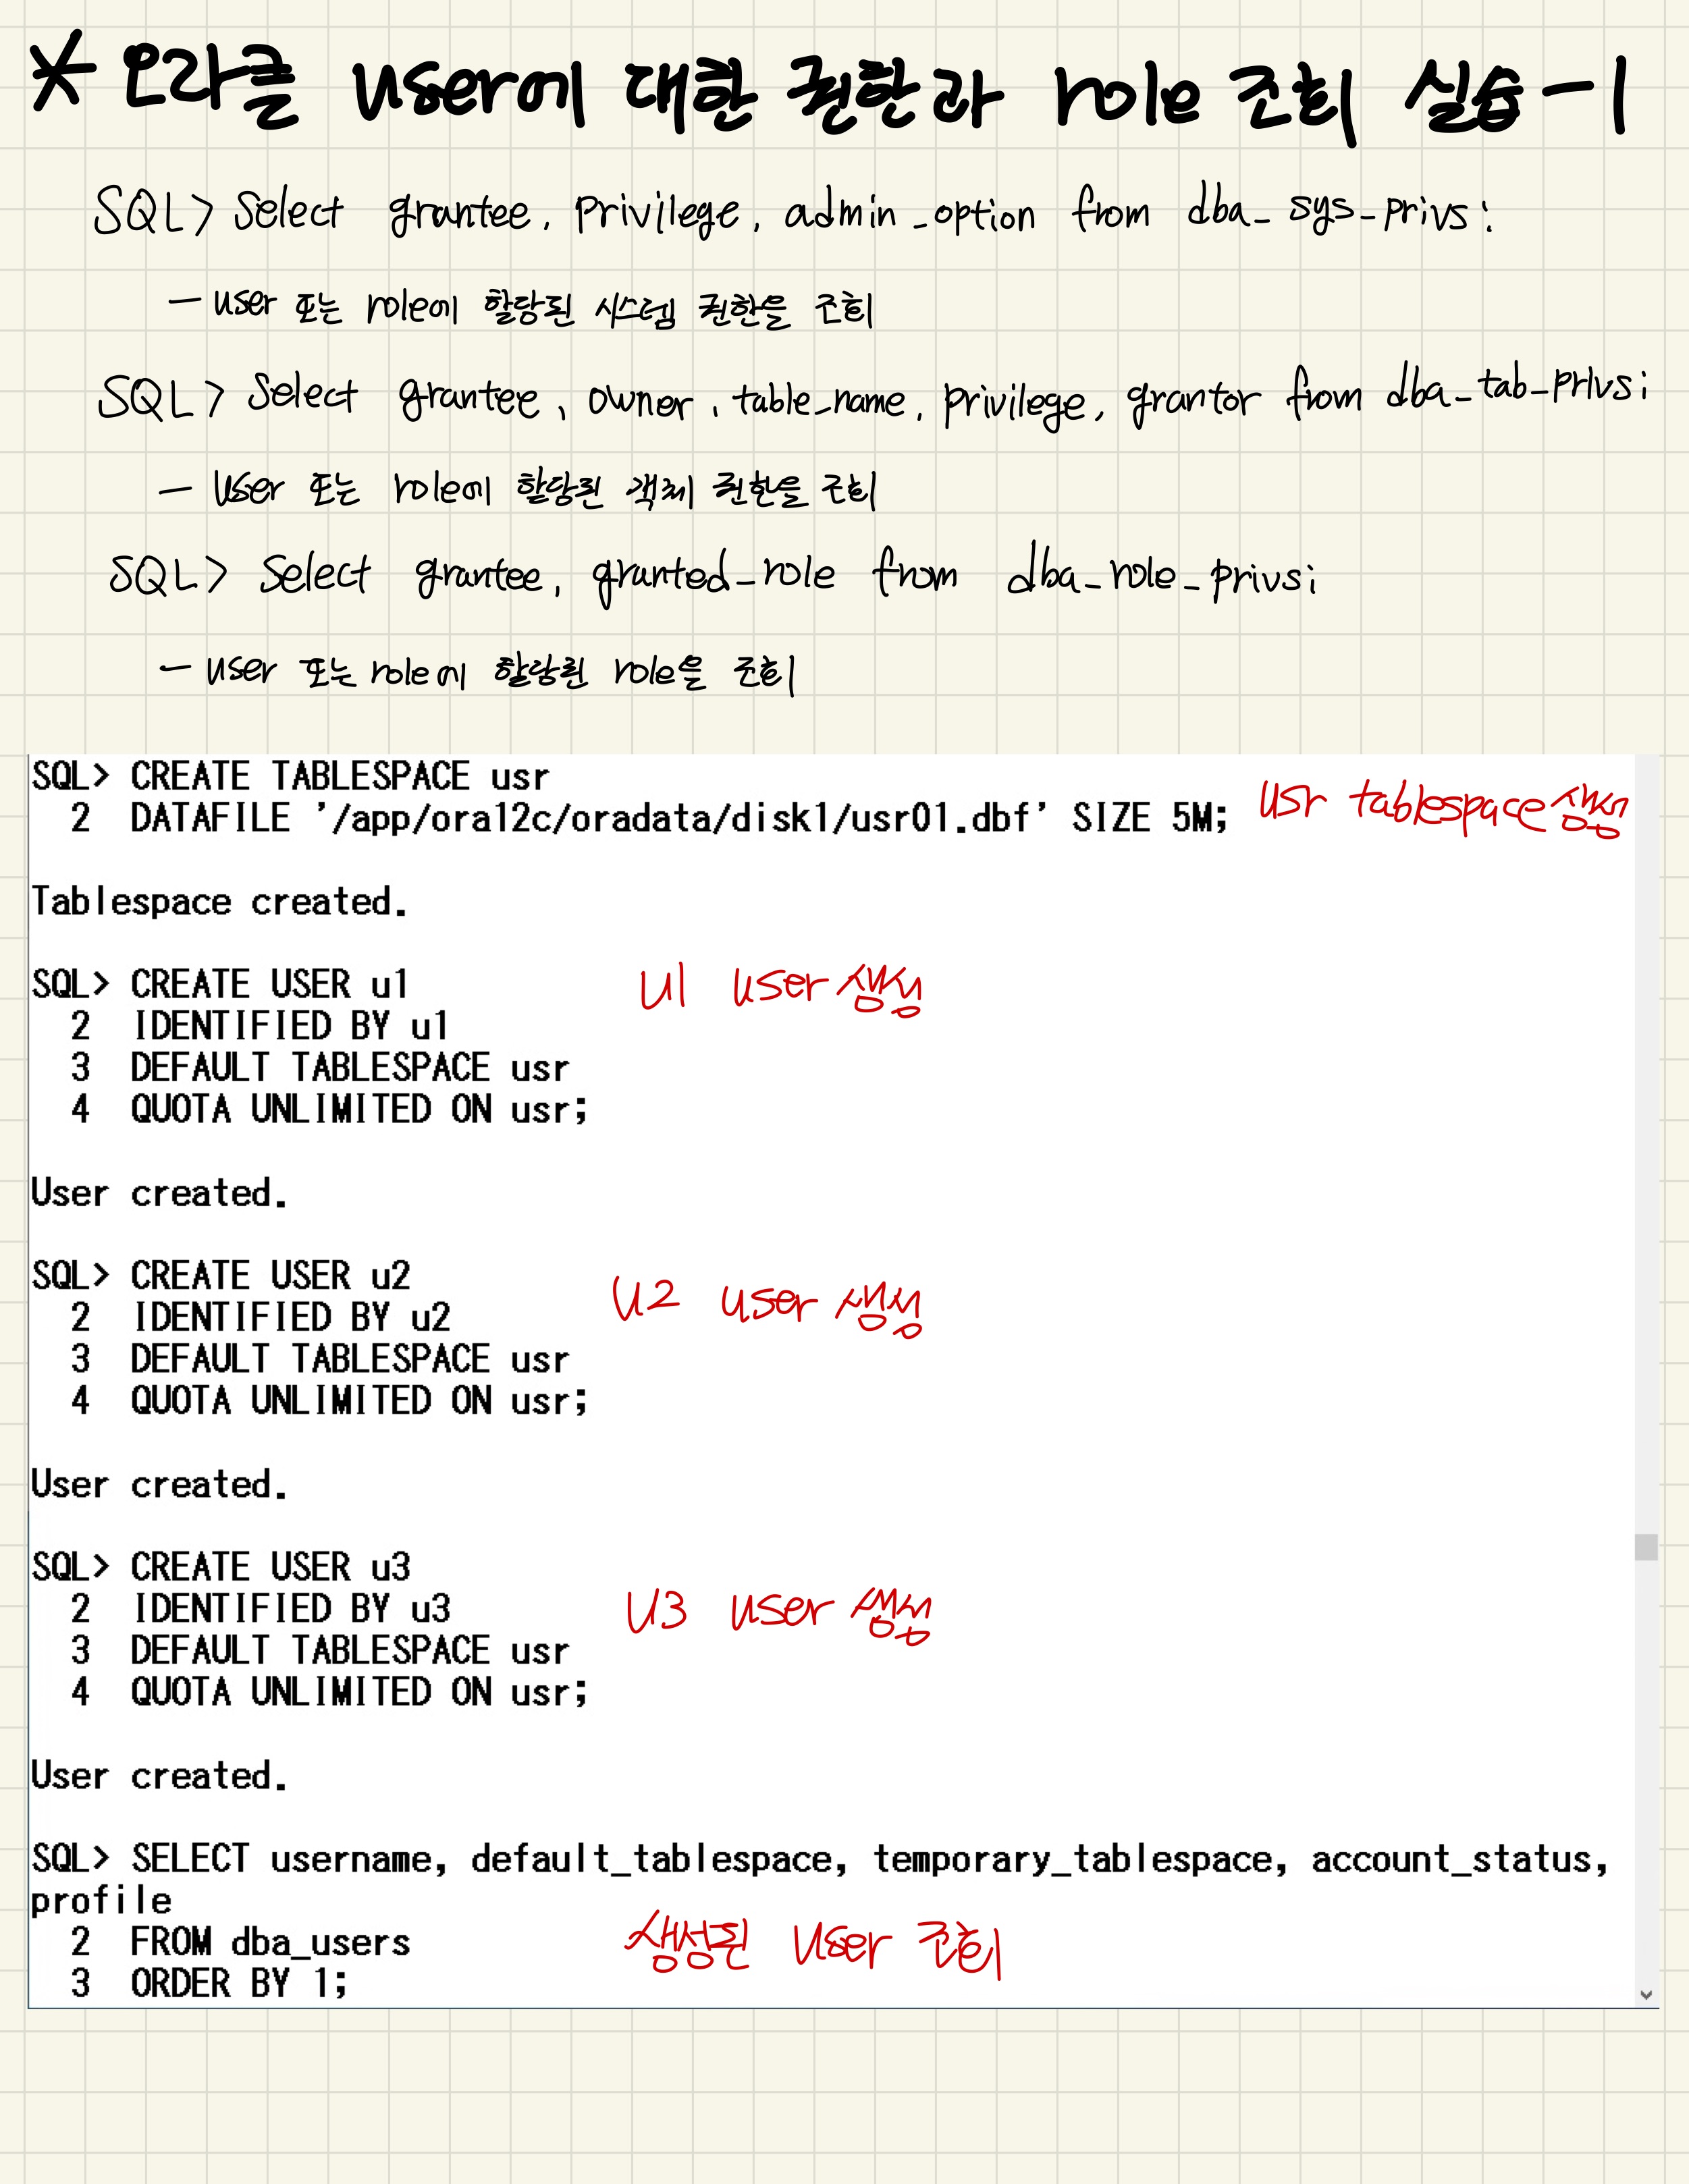 * 오라클 user에 대한 권한과 role 조회 실습-1
SQL> Select grantee, privilege, admin_option from dba_sys_privs;
- user 또는 role에 할당된 시스템 권한을 조회
SQL> Select grantee, owner, table_name, privilege, grantor from dba_tab_privs;
- user 또는 role에 할당된 객체 권한을 조회
SQL> Select grantee, granted_role from dba_role_privs;
- user 또는 role에 할당된 role을 조회
SQL> CREATE TABLESPACE usr
2 DATAFILE '/app/ora12c/oradata/disk1/usr01.dbf' SIZE 5M; usr tablespace 생성
Tablespace created.
SQL> CREATE USER u1 U1 user 생성
2 IDENTIFIED BY u1
3 DEFAULT TABLESPACE usr
4 QUOTA UNLIMITED ON usr;
User created.
SQL> CREATE USER u2 U2 user 생성
2 IDENTIFIED BY u2
3 DEFAULT TABLESPACE usr
4 QUOTA UNLIMITED ON usr;
User created.
SQL> CREATE USER u3
2 IDENTIFIED BY u3 U3 user 생성
3 DEFAULT TABLESPACE usr
4 QUOTA UNLIMITED ON usr;
User created.
SQL> SELECT username, default_tablespace, temporary_tablespace, account_status,
profile
2 FROM dba_users 생성된 user 조회
3 ORDER BY 1;